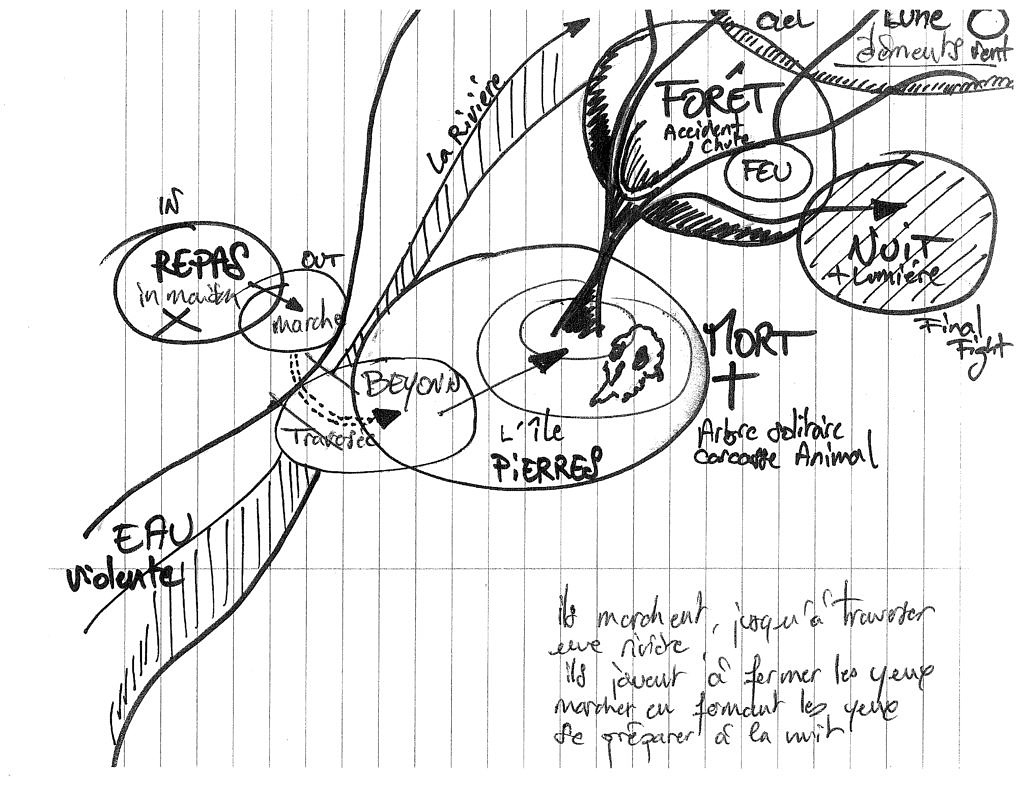 Ciel
LUNE
éléments vent
La Rivière
FORÊT
Accident
Chute
FEU
IN
REPAS
in
OUT
marche
NUIT
+ Lumière
Final
Fight
BEYOND
Traversée
L'île
PIERRES
MORT
+
Arbre solitaire
carcasse Animal
EAU
violente
ils marchent, jusqu'à traverser
une rivière
ils jouent à fermer les yeux
marcher en fermant les yeux
se préparer à la nuit